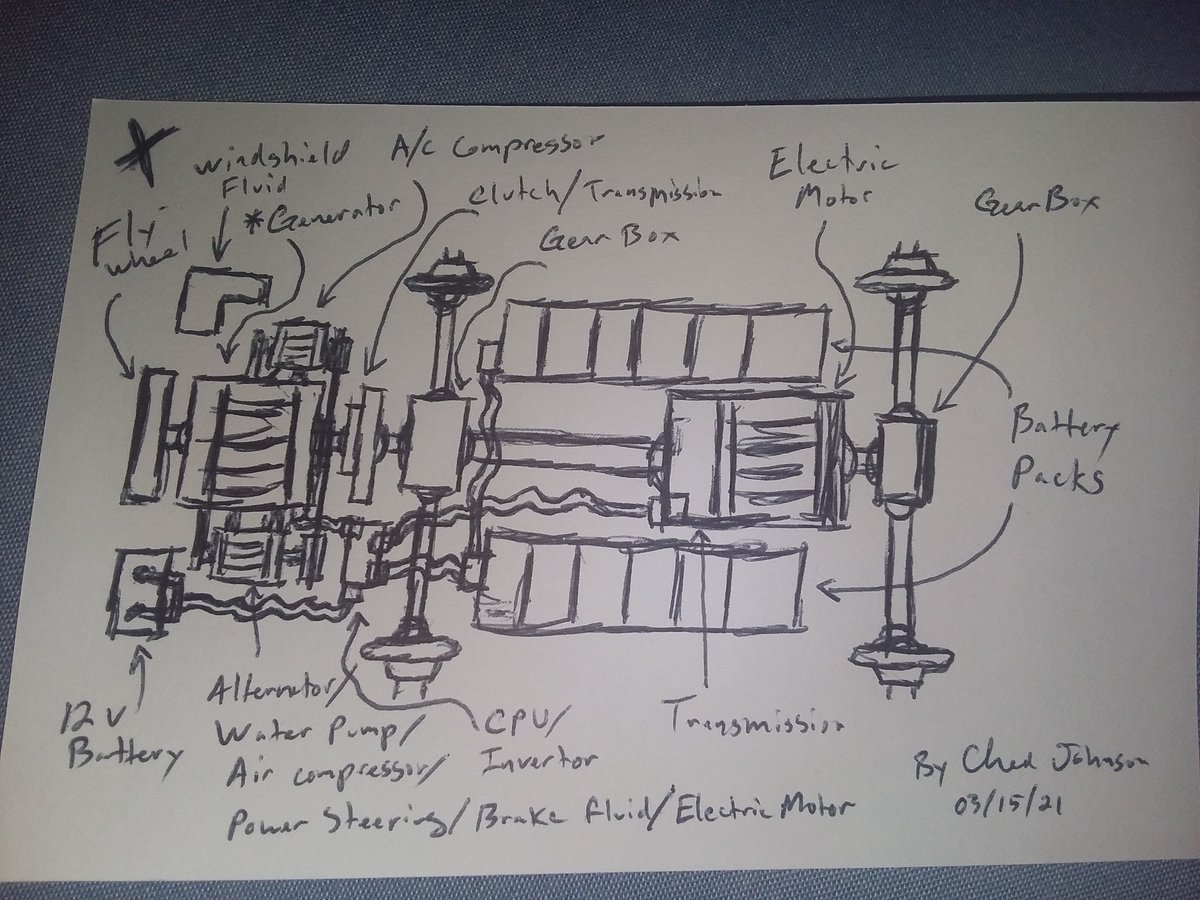 Windshield
Fluid
A/C Compressor
Fly
wheel
*Generator
Clutch/Transmission
Gear Box
Electric
Motor
Gear Box
Battery
Packs
12 V
Battery
Alternator/
Water Pump/
Air compressor/
Power Steering/Brake Fluid/Electric Motor
CPU/
Invertor
Transmission
By Chad Johnson
03/15/21